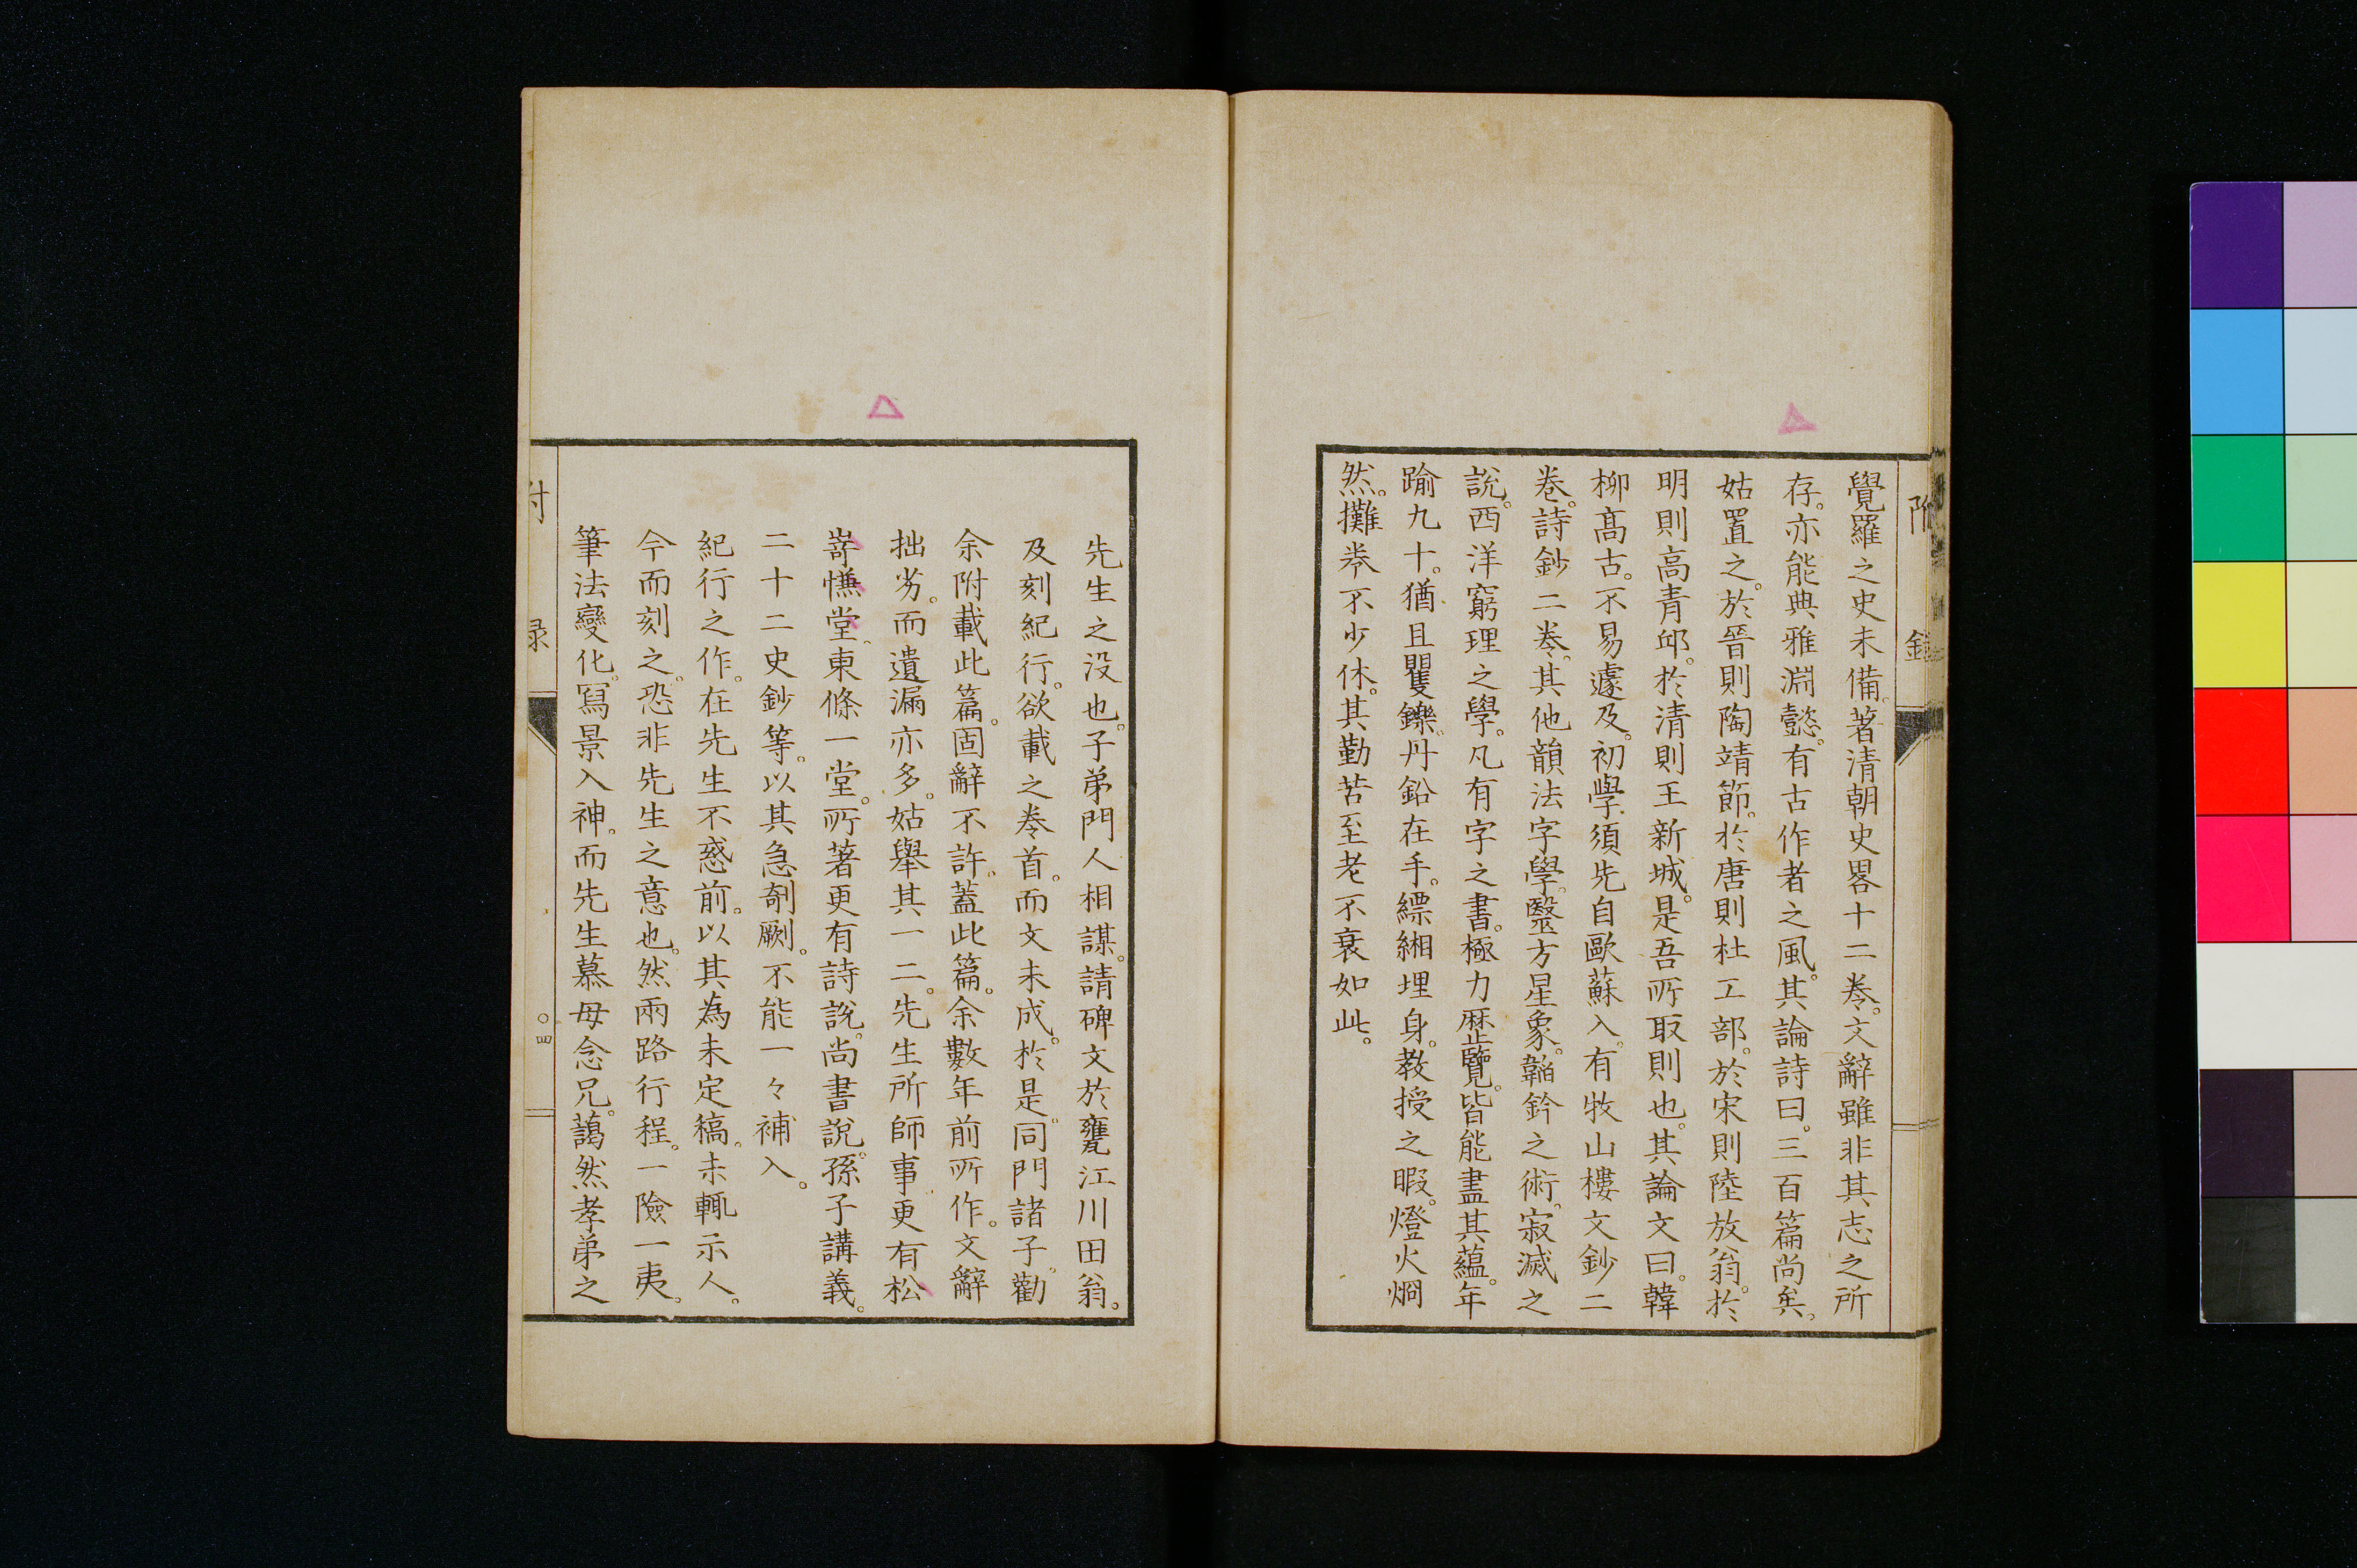 覺羅之史未備。著清朝史畧十二卷。文辭雖非其志之所
存。亦能典雅淵懿。有古作者之風。其論詩曰。三百篇尚矣。
姑置之。於晉則陶靖節。於唐則杜工部。於宋則陸放翁。於
明則高青邱。於清則王新城。是吾所取則也。其論文曰。韓
柳高古。不易遽及。初學須先自歐蘇入。有牧山樓文鈔二
卷。詩鈔二卷。其他韻法字學。毉方星象。韜鈐之術。寂滅之
說。西洋窮理之學。凡有字之書。極力歷覽。皆能盡其蘊。年
踰九十。猶且矍鑠。丹鉛在手。縹緗埋身。教授之暇。燈火烱
然。攤卷不少休。其勤苦至老不衰如此。
附 錄
先生之没也。子弟門人相謀。請碑文於甕江川田翁。
及刻紀行。欲載之卷首。而文未成。於是。同門諸子。勸
余附載此篇。固辭不許。蓋此篇。余數年前所作。文辭
拙劣。而遺漏亦多。姑舉其一二。先生所師事更有松
嵜慊堂。東條一堂。所著更有詩說。尚書說。孫子講義。
二十二史鈔等。以其急剞劂。不能一々補入。
紀行之作。在先生不惑前。以其為未定稿。未輒示人。
今而刻之。恐非先生之意也。然兩路行程。一險一夷。
筆法變化。寫景入神。而先生慕母念兄。藹然孝弟之
附 録
〇四